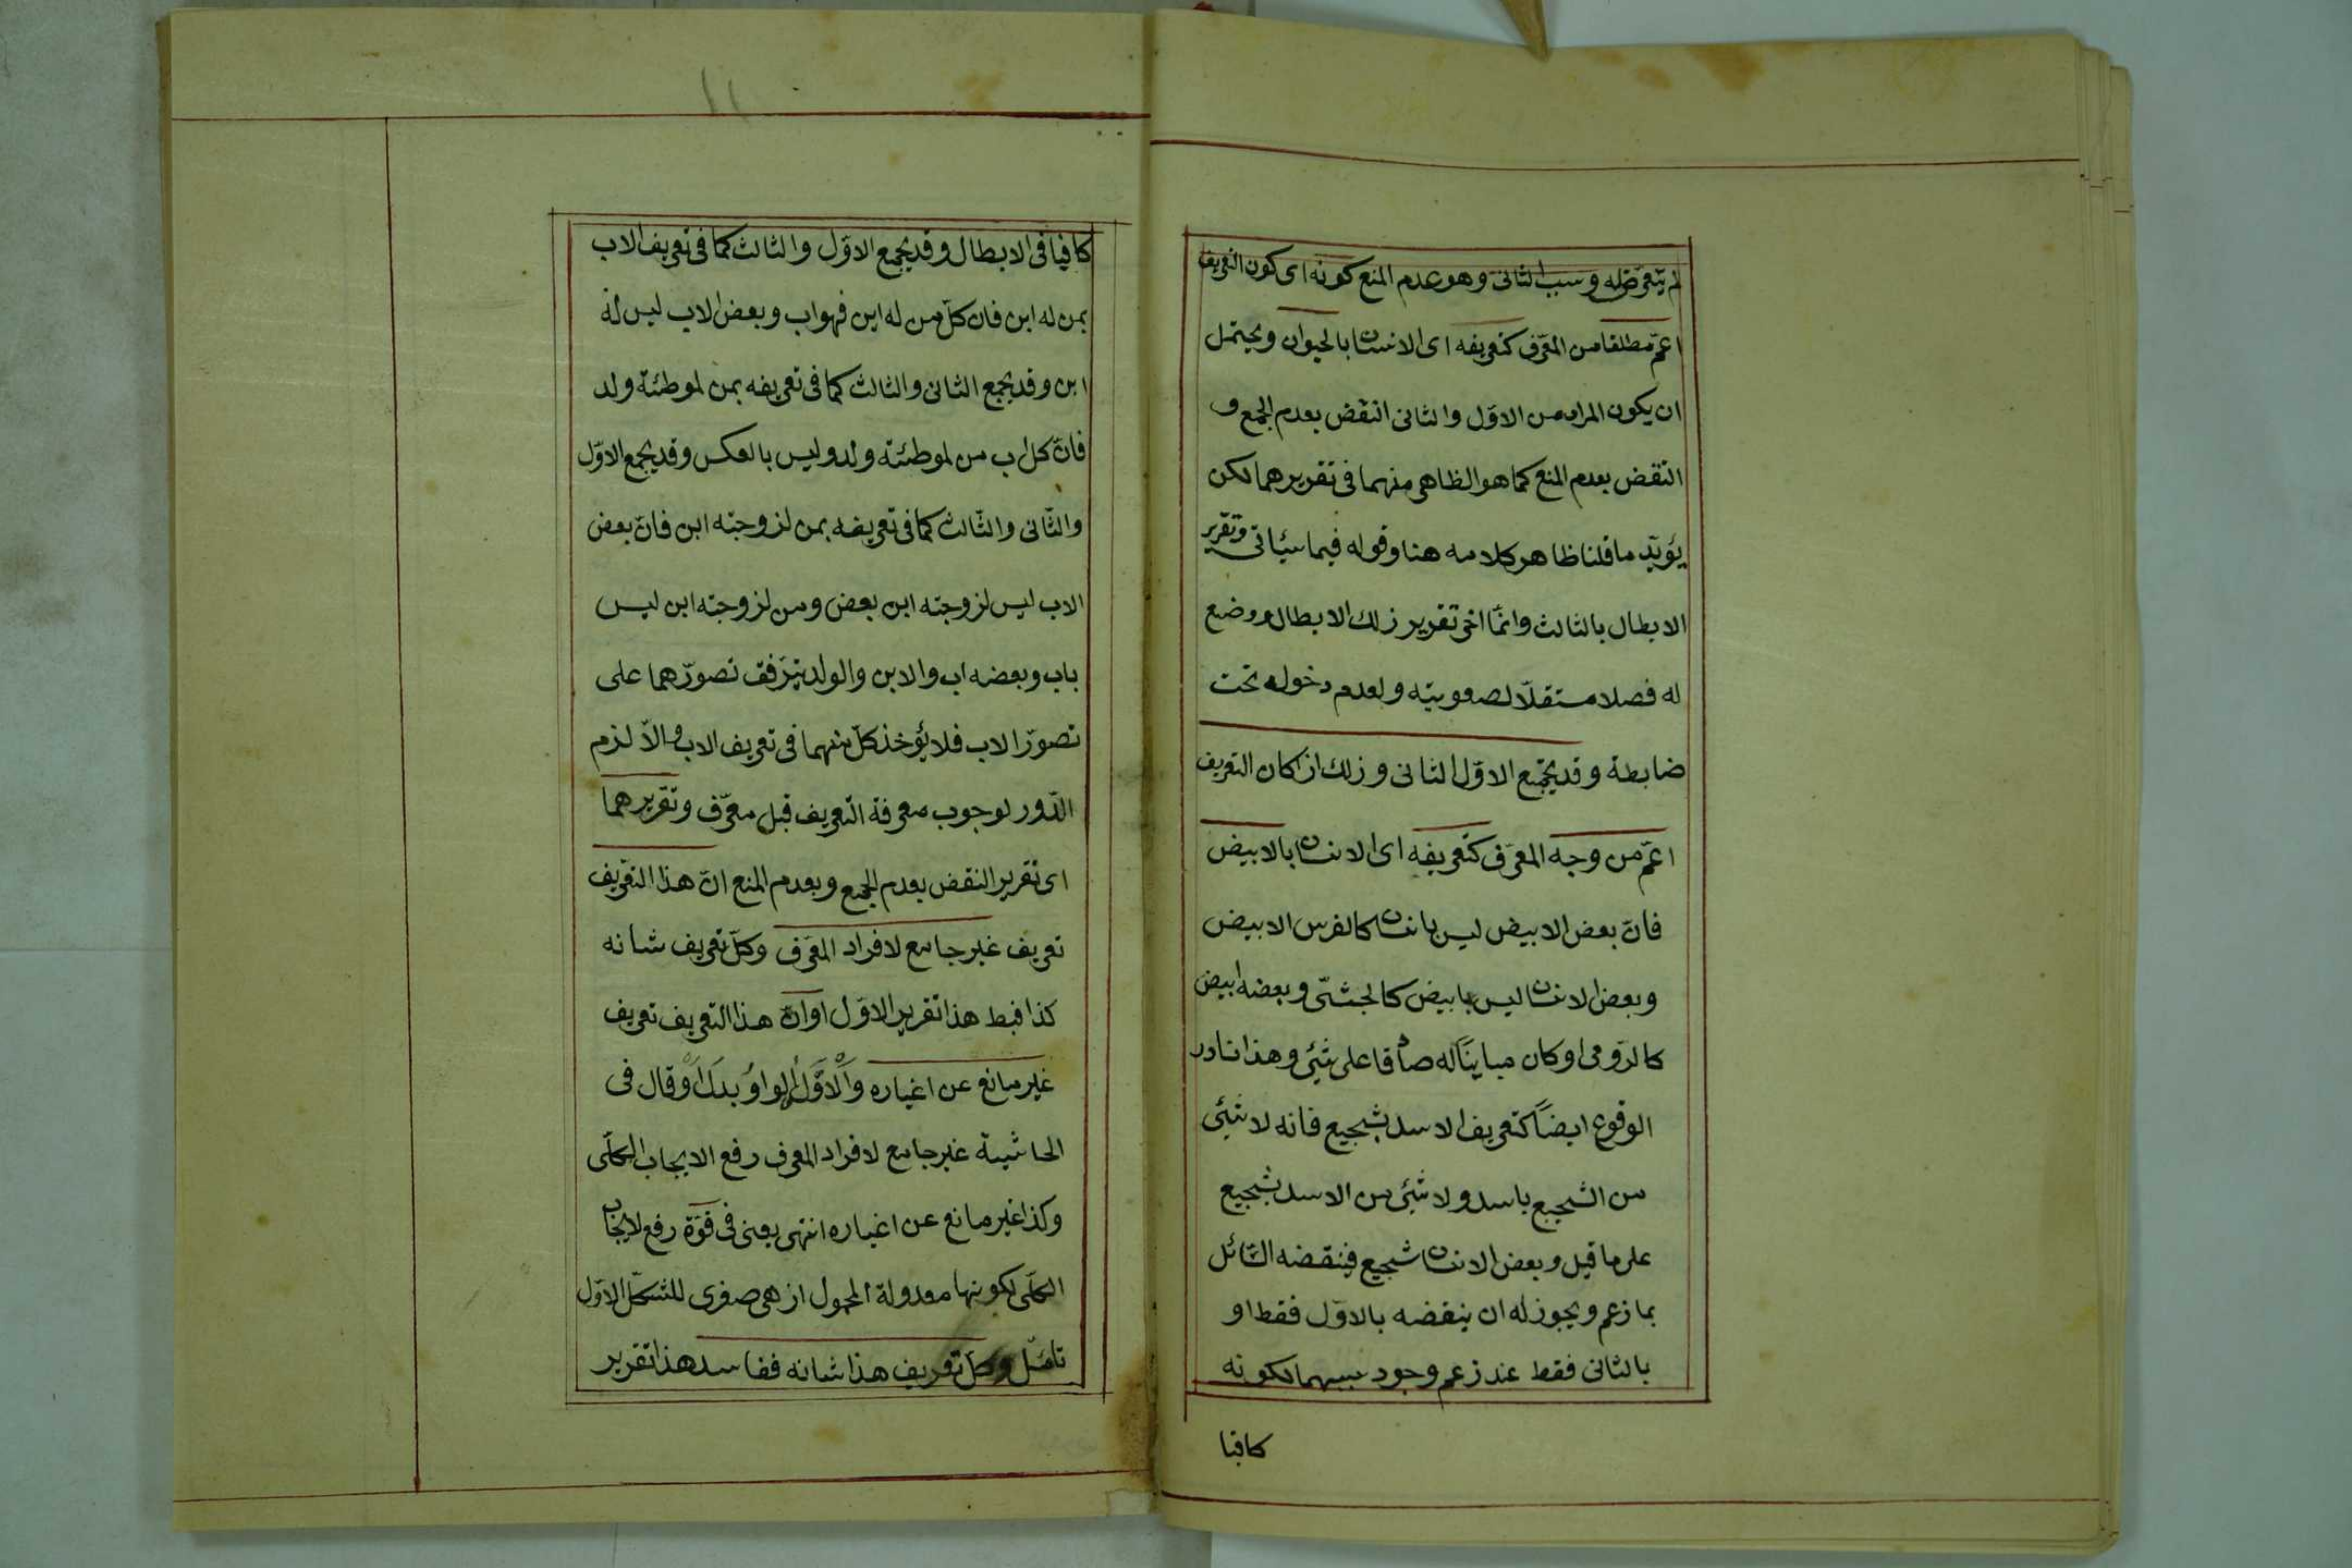 لم يتعرض له وسبب الثاني وهو عدم المنع كونه اى كون التعريف
اعمّ مطلقا من المعرّف كتعريفه اى الانسان بالحيوان ويحتمل
ان يكون المراد من الاوّل والثانى النقض بعدم الجمع و
النقض بعدم المنع كما هو الظاهر منهما فى تقريرهما لكن
يؤيّد ما قلنا ظاهر كلامه هنا وقوله فيما سيأتى وتقرير
الابطال بالثالث وانّما اخر تقرير ذلك الابطال ووضع
له فصلا مستقلّا لصعوبته ولعدم دخوله تحت
ضابطة وقد يجتمع الاوّل الثانى وذلك اذا كان التعريف
اعمّ من وجه المعرّف كتعريفه اى الانسان بالابيض
فانّ بعض الابيض ليس بانسان كالفرس الابيض
وبعض الانسان ليس بابيض كالحبشّى وبعضه ابيض
كالرّومى او كان مباينًا له صادقا على شيئ وهذا نادر
الوقوع ايضاً كتعريف الاسد بشجيع فانه لا شيئ
من الشجيع باسد ولا شيئ من الاسد بشجيع
على ما قيل وبعض الانسان شجيع فينقضه السّائل
بما زعم ويجوز له ان ينقضه بالاوّل فقط او
بالثانى فقط عند زعم وجود سببهما لكونه
كافيا
كافيا فى الابطال وقد يجمع الاوّل والثالث كما فى تعريف الاب
بمن له ابن فان كلّ من له ابن فهو اب وبعض الاب ليس له
ابن وقد يجمع الثانى والثالث كما فى تعريفه بمن لموطئة ولد
فانّ كل اب من لموطئته ولد وليس بالعكس وقد يجمع الاوّل
والثّانى والثّالث كما فى تعريفه بمن لزوجته ابن فانّ بعض
الاب ليس لزوجته ابن بعض ومن لزوجته ابن ليس
باب وبعضه اب والابن والولد يتوقف تصوّرهما على
تصوّر الاب فلا يؤخذ كلّ منهما فى تعريف الاب والّا لزم
الدّور لوجوب معرفة التّعريف قبل معرّف وتقريرهما
اى تقرير النقض بعدم الجمع وبعدم المنع انّ هذا التعريف
تعريف غير جامع لافراد المعّرف وكلّ تعريف شانه
كذا فبط هذا تقرير الاوّل او انّ هذا التعريف تعريف
غير مانع عن اغياره وَالْاَوَّلُ الواوُ بدل اَوْ وقال فى
الحاشية غير جامع لافراد المعرف رفع الايجاب الكلّى
وكذا غير مانع عن اغياره انتهى يعنى فى قوّة رفع لايجاب
الكلّى لكونها معدولة المحمول اذ هى صغرى للشكل الاوّل
تامّل وكل تعريف هذا شانه ففاسد هذا تقرير